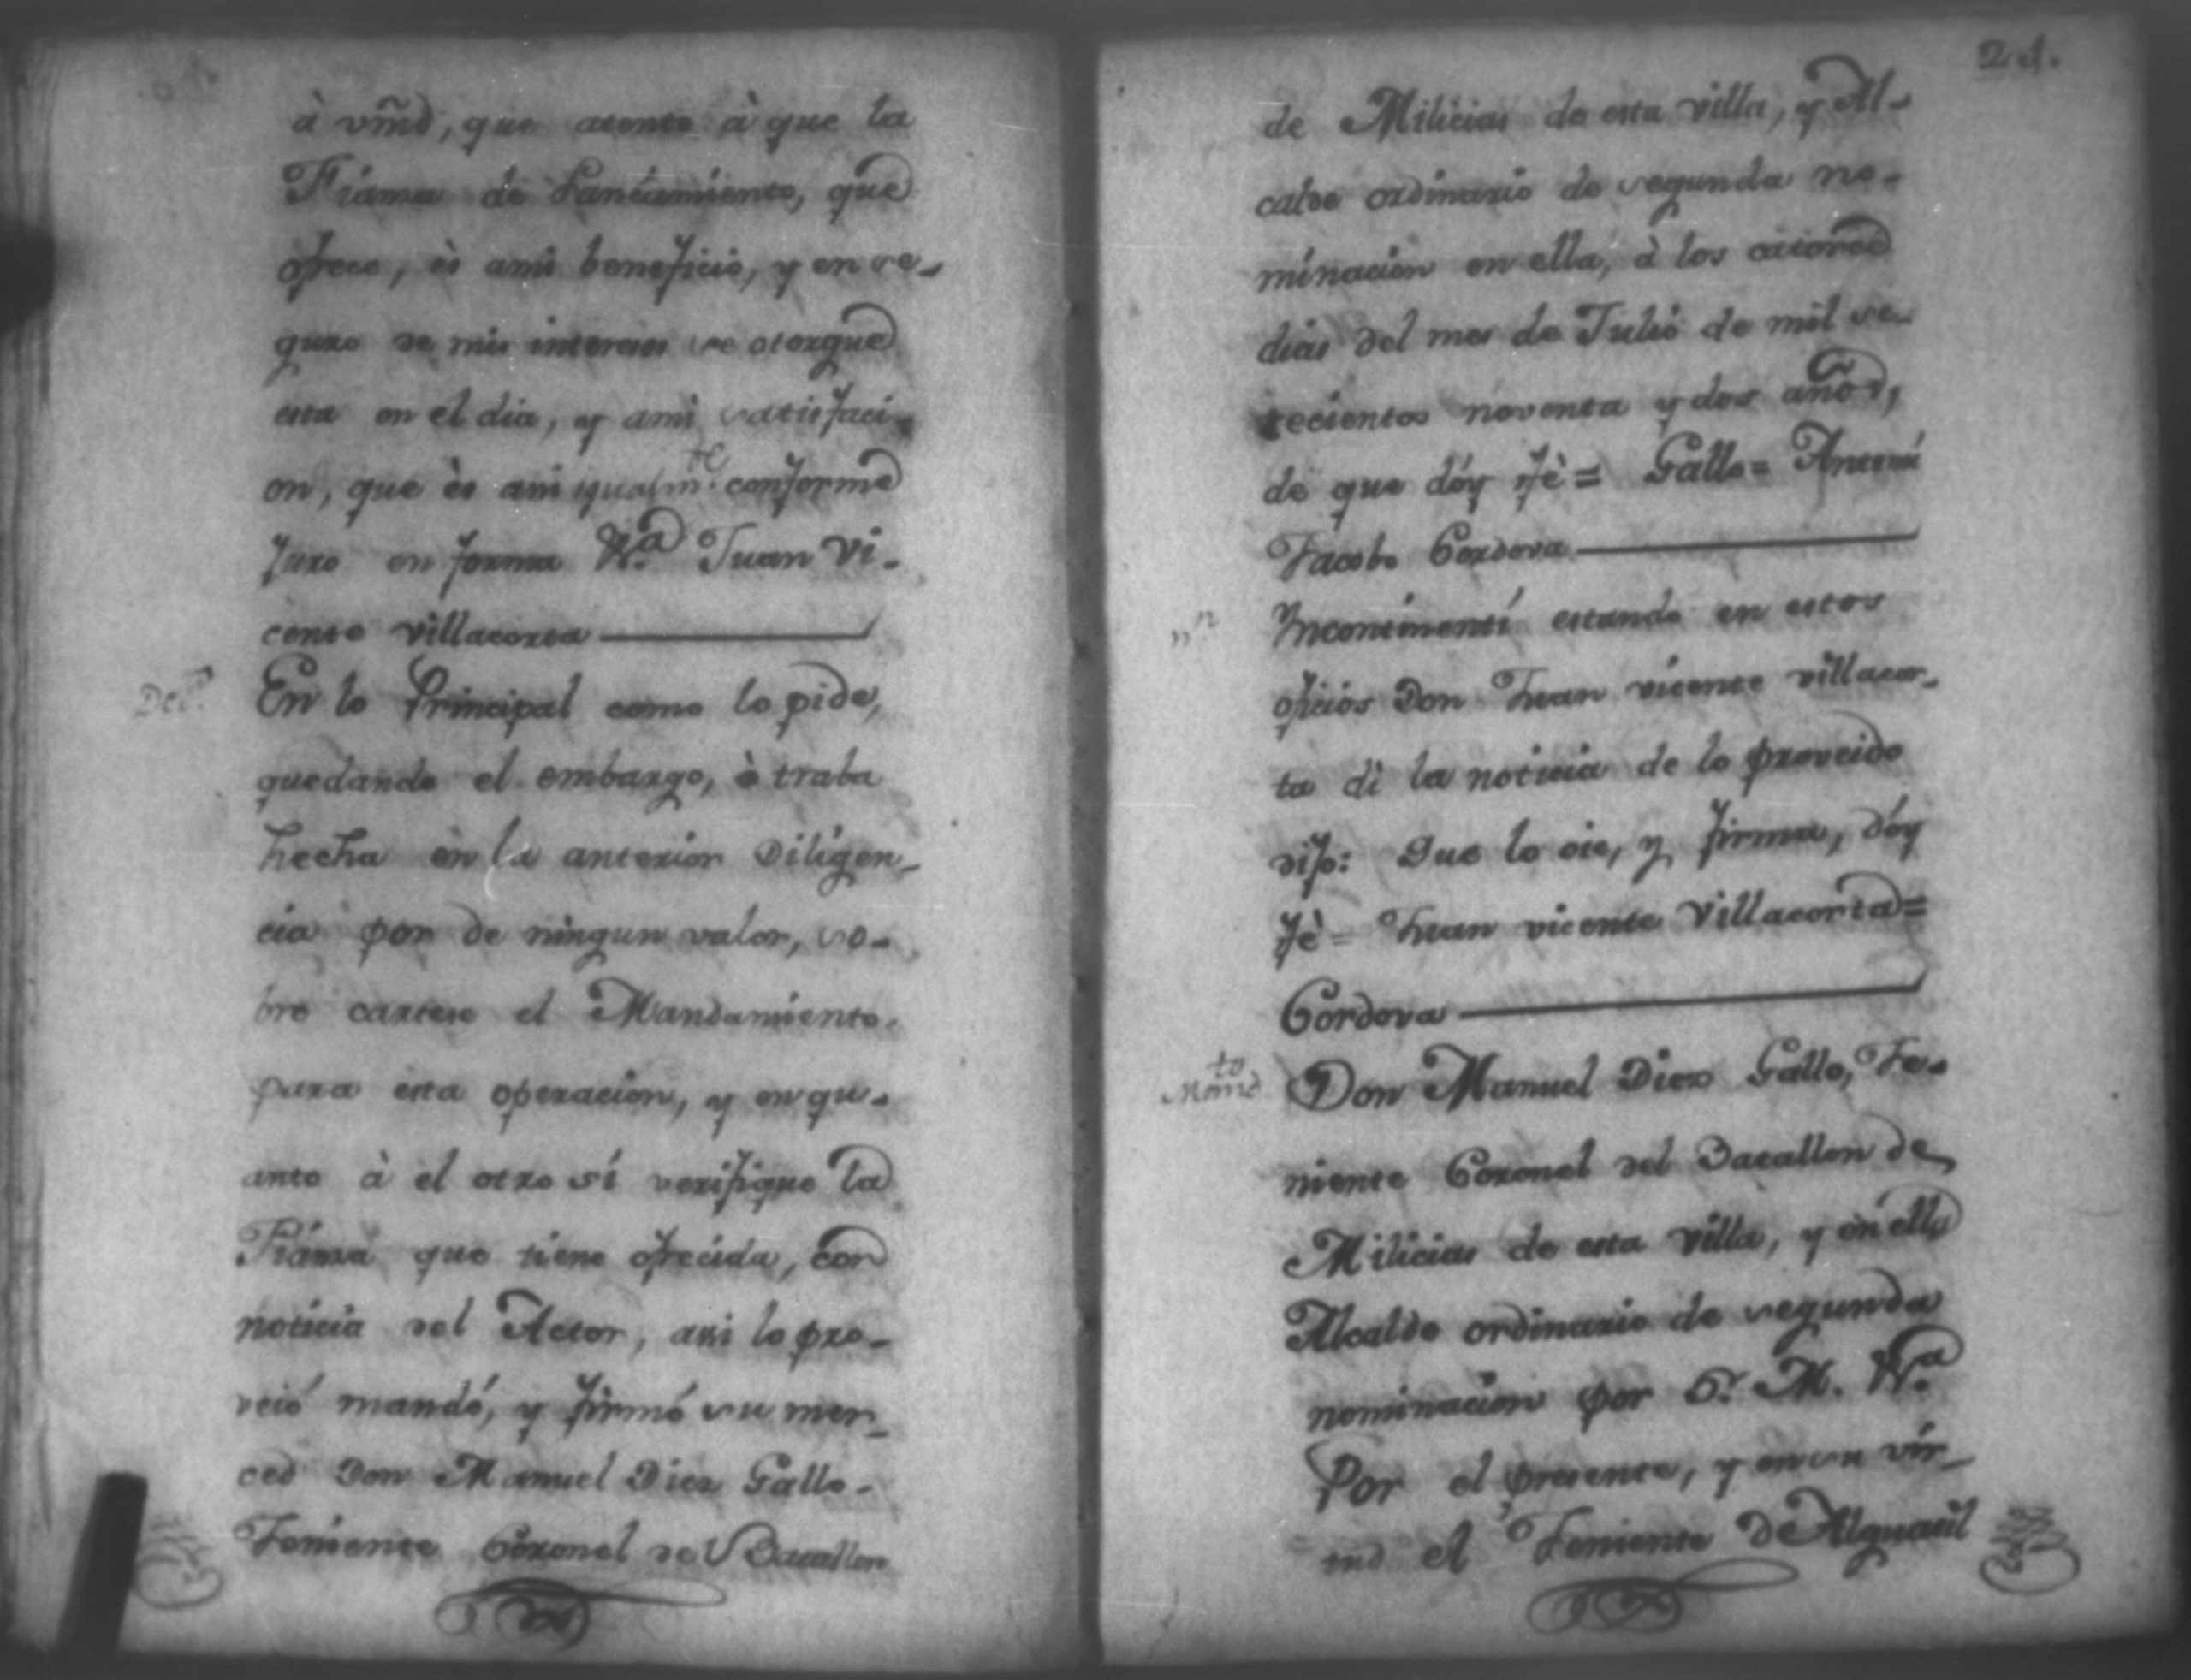 à vm̃d, que atento à que la
Fiansa de Sanéamiento, que
ofrece, és ami beneficio, y en se-
guro de mis intereses se otorgue
esta en el dia, y ami satisfaci-
on, que és ami igualm.te conforme
Juro en forma V.a Juan Vi-
cente Villacorta
Dec.to En lo Principal como lo pide,
quedando el embargo, ò traba
hecha en la anterior Diligen-
cia por de ningun valor, so-
bre cartese el Mandamiento
para esta operacion, y en qu-
anto à el otro sí verifique la
Fiansa que tiene ofrecida, con
noticia del Actor, asi lo pro-
veió mandó, y firmó su mer-
ced Don Manuel Diez Gallo
Teniente Coronel del Batallon
21.
de Milicias de esta villa, y Al-
calde ordinario de segunda no-
minacion en ella, à los catorce
dias del mes de Julio de mil se-
tecientos noventa y dos años,
de que dóy fè = Gallo = Antemi
Jacobo Cordova
n.n Yncontinenti estando en estos
oficios Don Juan vicente villacor-
ta di la noticia de lo proveido
dijo: Que lo oie, y firma, dóy
fè = Juan vicente Villacorta =
Cordova
Mand.to Don Manuel Diez Gallo, Te-
niente Coronel del Batallon de
Milicias de esta villa, y en ella
Alcalde ordinario de segunda
nominacion por S. M. V.a
Por el presente, y en su vir-
tud el Teniente de Alguacil